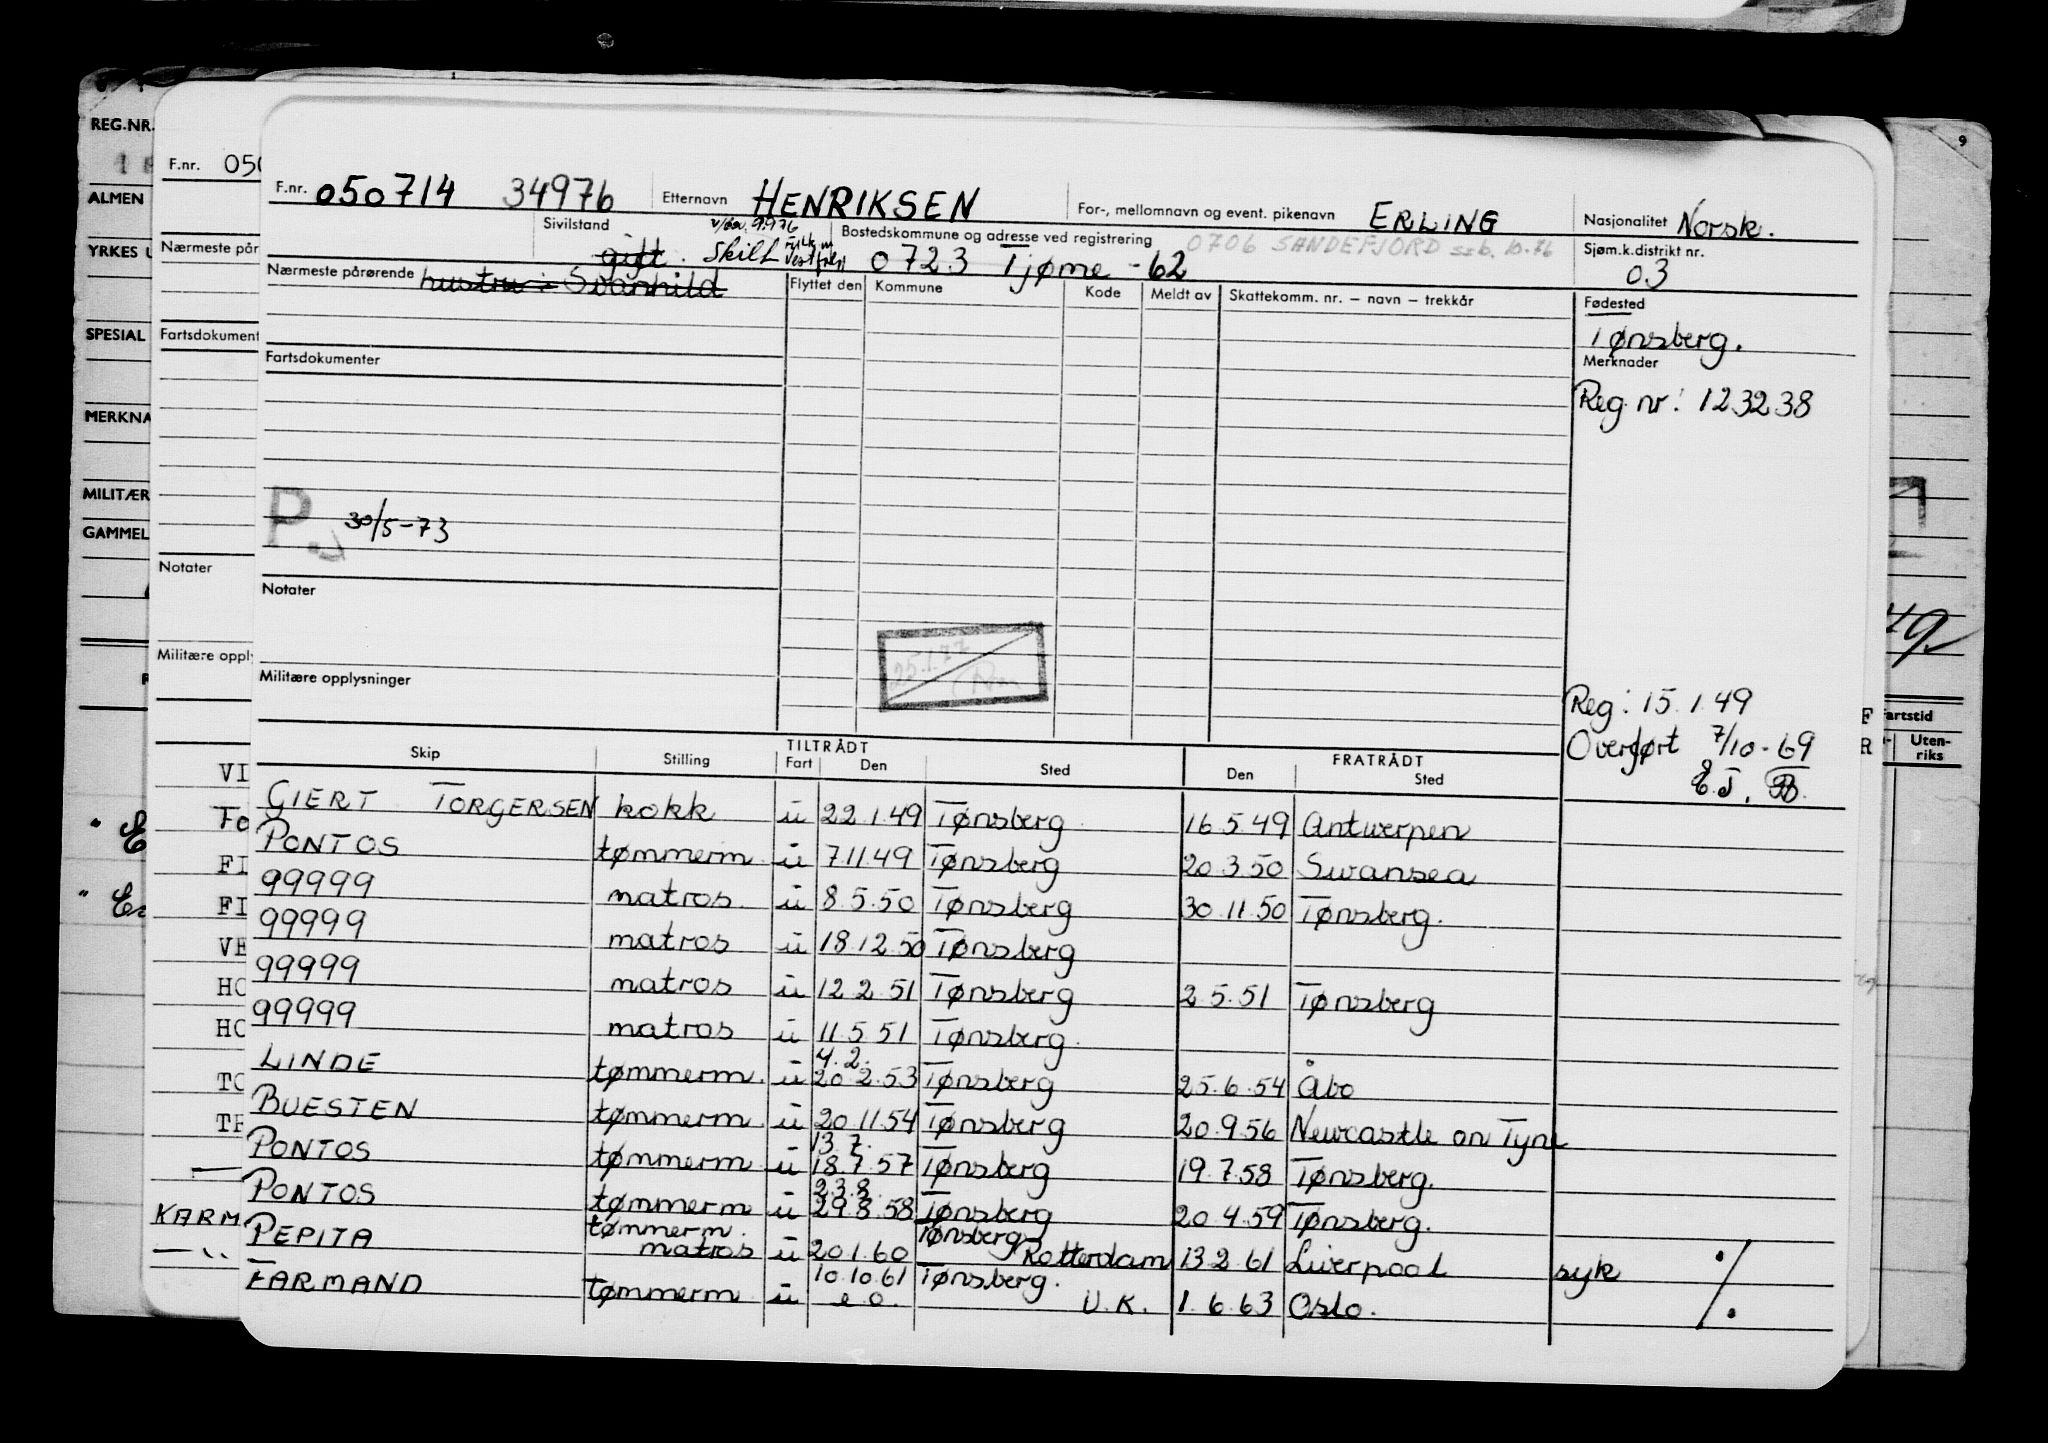 9
REG.NR.
ALMEN
YRKES U
SPESIAL
MERKNA
MILITÆR
GAMMEL
F.nr. 050
Nærmeste pår
Fartsdokument
Notater
Militære oppl
F.nr. 050714 34976 Etternavn HENRIKSEN For-, mellomnavn og event. pikenavn ERLING Nasjonalitet Norsk.
Sivilstand gift. Skilt Bostedskommune og adresse ved registrering 0723 Tjøme -62 0706 SANDEFJORD ssb. 10.76 Sjøm.k.distrikt nr. 03
Nærmeste pårørende hustru : Svanhild Flyttet den Kommune Kode Meldt av Skattekomm. nr. – navn – trekkår Fødested
Tønsberg.
Fartsdokumenter Merknader
Reg. nr: 123238
P. 30/5-73
Notater
25.1.77
Militære opplysninger
Reg: 15.1.49
Overført 7/10-69
E.J.
Skip Stilling TILTRÅDT Fart Den Sted FRATRÅDT Den Sted
GIERT TORGERSEN kokk u 22.1.49 Tønsberg 16.5.49 Antwerpen
PONTOS tømmerm. u 7.11.49 Tønsberg 20.3.50 Swansea
99999 matros. u 8.5.50 Tønsberg 30.11.50 Tønsberg.
99999 matros u 18.12.50 Tønsberg
99999 matros u 12.2.51 Tønsberg 2.5.51 Tønsberg
99999 matros u 11.5.51 Tønsberg.
LINDE tømmerm. u 4.2. 20.2.53 Tønsberg 25.6.54 Åbo
BUESTEN tømmerm u 20.11.54 Tønsberg 20.9.56 Newcastle on Tyne
PONTOS tømmerm u 13.7. 18.7.57 Tønsberg 19.7.58 Tønsberg.
PONTOS tømmerm u 23.8. 29.8.58 Tønsberg 20.4.59 Tønsberg.
PEPITA tømmerm. matros u 20.1.60 Tønsberg Rotterdam 13.2.61 Liverpool syk ./.
FARMAND tømmerm u 10.10.61 e.o. Tønsberg. U.K. 1.6.63 Oslo.
VI
FI
FI
VE
HO
HO
TO
KARM
Fartstid
Uten-
riks